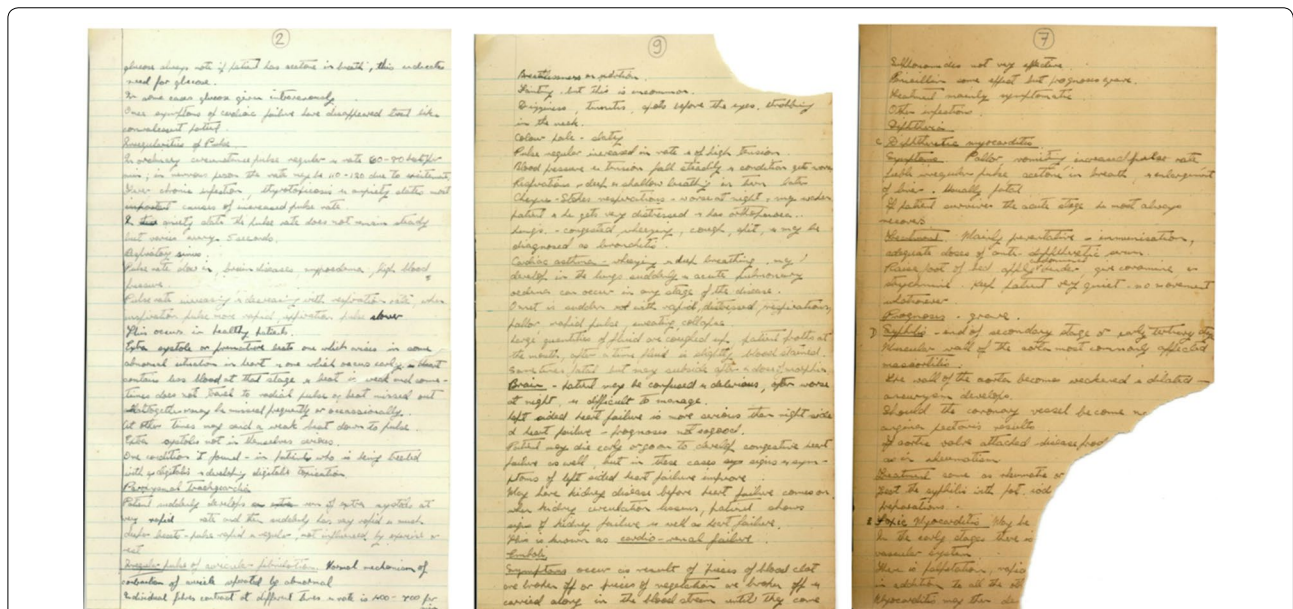 2
glucose always note if patient has acetone in breath, this indicates
need for glucose.
In some cases glucose given intravenously.
Once symptoms of cardiac failure have disappeared treat like
convalescent patient.
Irregularities of Pulse
In ordinary circumstances pulse regular is rate 60-80 beats per
min; in nervous person the rate may be 110-120 due to excitement
Fever chronic infection, thyrotoxicosis is anxiety states most
important causes of increased pulse rate.
In anxiety state the pulse rate does not remain steady
but varies every 5 seconds.
Respiratory sinus.
Pulse rate slow in, brain diseases, myxoedema, high blood
pressure.
Pulse rate increasing & decreasing with respiration rate, when
inspiration pulse more rapid, expiration pulse slower
This occurs in healthy patient.
Extra systole or premature beats one which arises in some
abnormal situation in heart & one which occurs early. Heart
contains less blood at that stage & beat is weak and some-
times does not travel to radial pulse so beat missed out
altogether may be missed frequently or occasionally.
At other times may send a weak beat down to pulse.
Extra systoles not in themselves serious.
One condition found - in patients who is being treated
with digitalis & developing digitalis
Paroxysmal Tachycardia
Patient suddenly develops run of extra systoles at
very rapid rate and then suddenly has very rapid
beats - pulse rapid & regular, not influenced by exercise or
rest
Irregular pulse of auricular fibrillation. Normal mechanism of
contraction of auricle upset by abnormal
Individual fibres contract at different times & rate is 400 - 700 per
9
Breathlessness on exertion.
Fainting, but this is uncommon.
Dizziness, tinnitus, spots before the eyes, throbbing
in the neck.
Colour pale - slaty
Pulse regular increased in rate & of high tension.
Blood pressure & tension fall steadily as condition gets worse
Respirations - deep & shallow breathing in turn
Cheyne-Stokes respirations & worse at night, may waken
patient & he gets very distressed & has orthopnoea.
Lungs. - congested, wheezing, cough, spit, & may be
diagnosed as bronchitis.
Cardiac asthma - wheezing & deep breathing, may
develop in the lungs suddenly & acute pulmonary
oedema can occur in any stage of the disease.
Onset is sudden with rapid, distressed, respirations,
pallor, rapid pulse, sweating, collapse.
Large quantities of fluid are coughed up, patient froths at
the mouth, after a time fluid is slightly blood stained.
Sometimes fatal but may subside after a dose of morphia.
Brain - patient may be confused & delirious, often worse
at night, is difficult to manage.
Left sided heart failure is more serious than right sided
heart failure - prognosis not so good.
Patient may die early or goes on to develop congestive heart
failure as well, but in these cases signs & symp-
toms of left sided heart failure improve
May have kidney disease before heart failure comes on.
when kidney circulation lessens, patient shows
signs of kidney failure as well as heart failure.
This is known as cardio-renal failure.
Emboli
Symptoms occur as result of pieces of blood clot
are broken off or pieces of vegetation are broken off &
carried along in the blood stream until they come
7
Sulphonamides not very effective.
Penicillin some effect but prognosis grave.
Treatment mainly symptomatic.
Other infections.
Diphtheria
c Diphtheritic myocarditis
Symptoms Pallor, vomiting increased pulse rate,
irregular pulse acetone in breath, & enlargement
of liver. Usually fatal
If patient survives the acute stage he most always
recovers.
Treatment. Mainly preventative - immunisation,
adequate doses of anti-diphtheritic serum.
Raise foot of bed apply abdominal binder, give coramine, or
strychnine. Keep patient very quiet - no movement
whatsoever.
Prognosis - grave.
D) Syphilis - end of secondary stage or early tertiary stage
Muscular wall of the aorta most commonly affected
mesaortitis.
The wall of the aorta becomes weakened & dilated -
aneurysm develops.
Should the coronary vessel become
angina pectoris results
If aortic valve attacked disease
as in rheumatism
Treatment same as rheumatic or
Treat the syphilis with pot. iod
preparations.
E Toxic Myocarditis May be
In the early stages there is
vascular system
There is palpitation, rapid
in addition to all the
Myocarditis may then